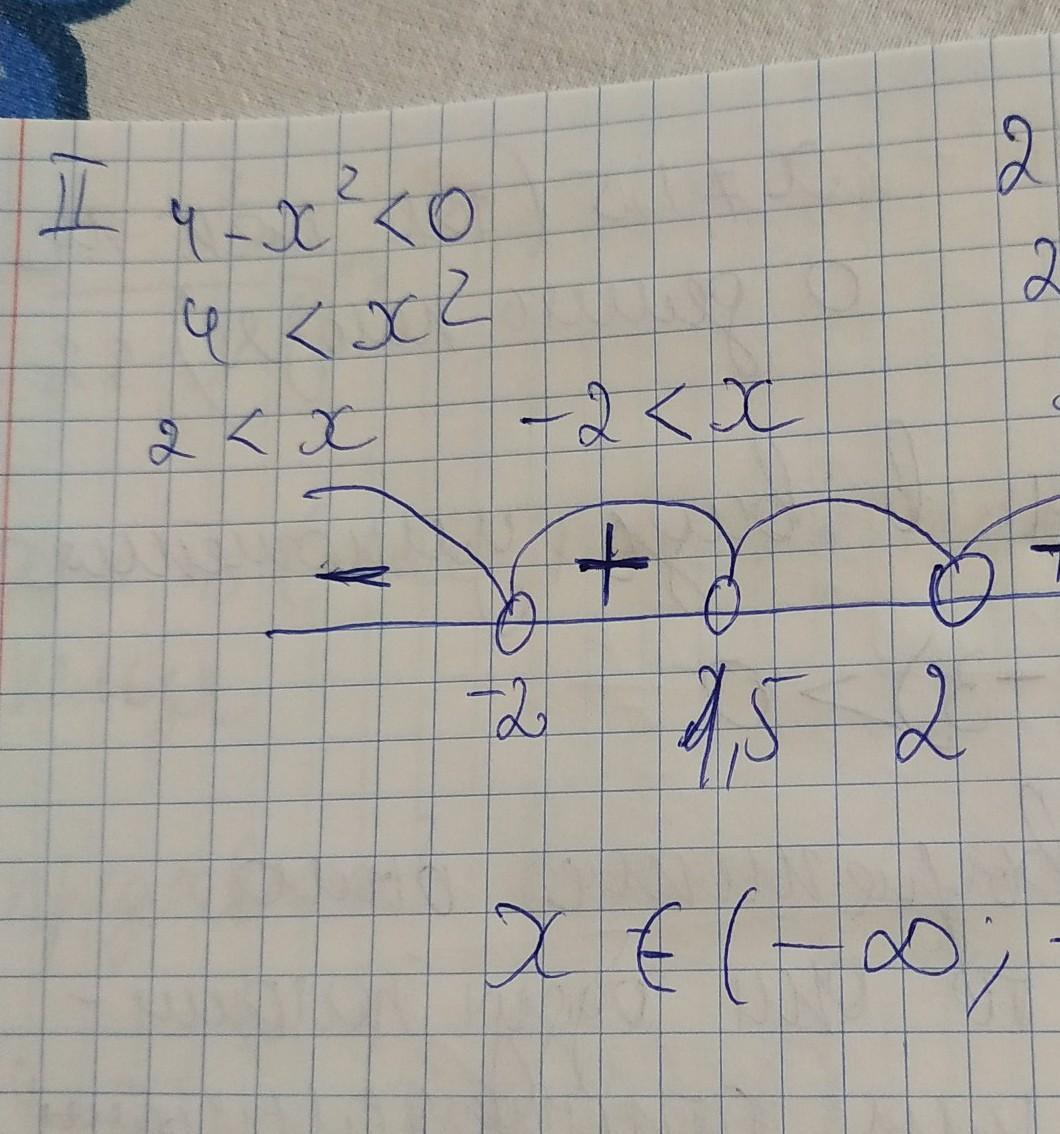 II 4-x²<0 2
4 < x² 2
2 < x -2 < x
- + +
-2 1,5 2
x ∈ (-∞; -